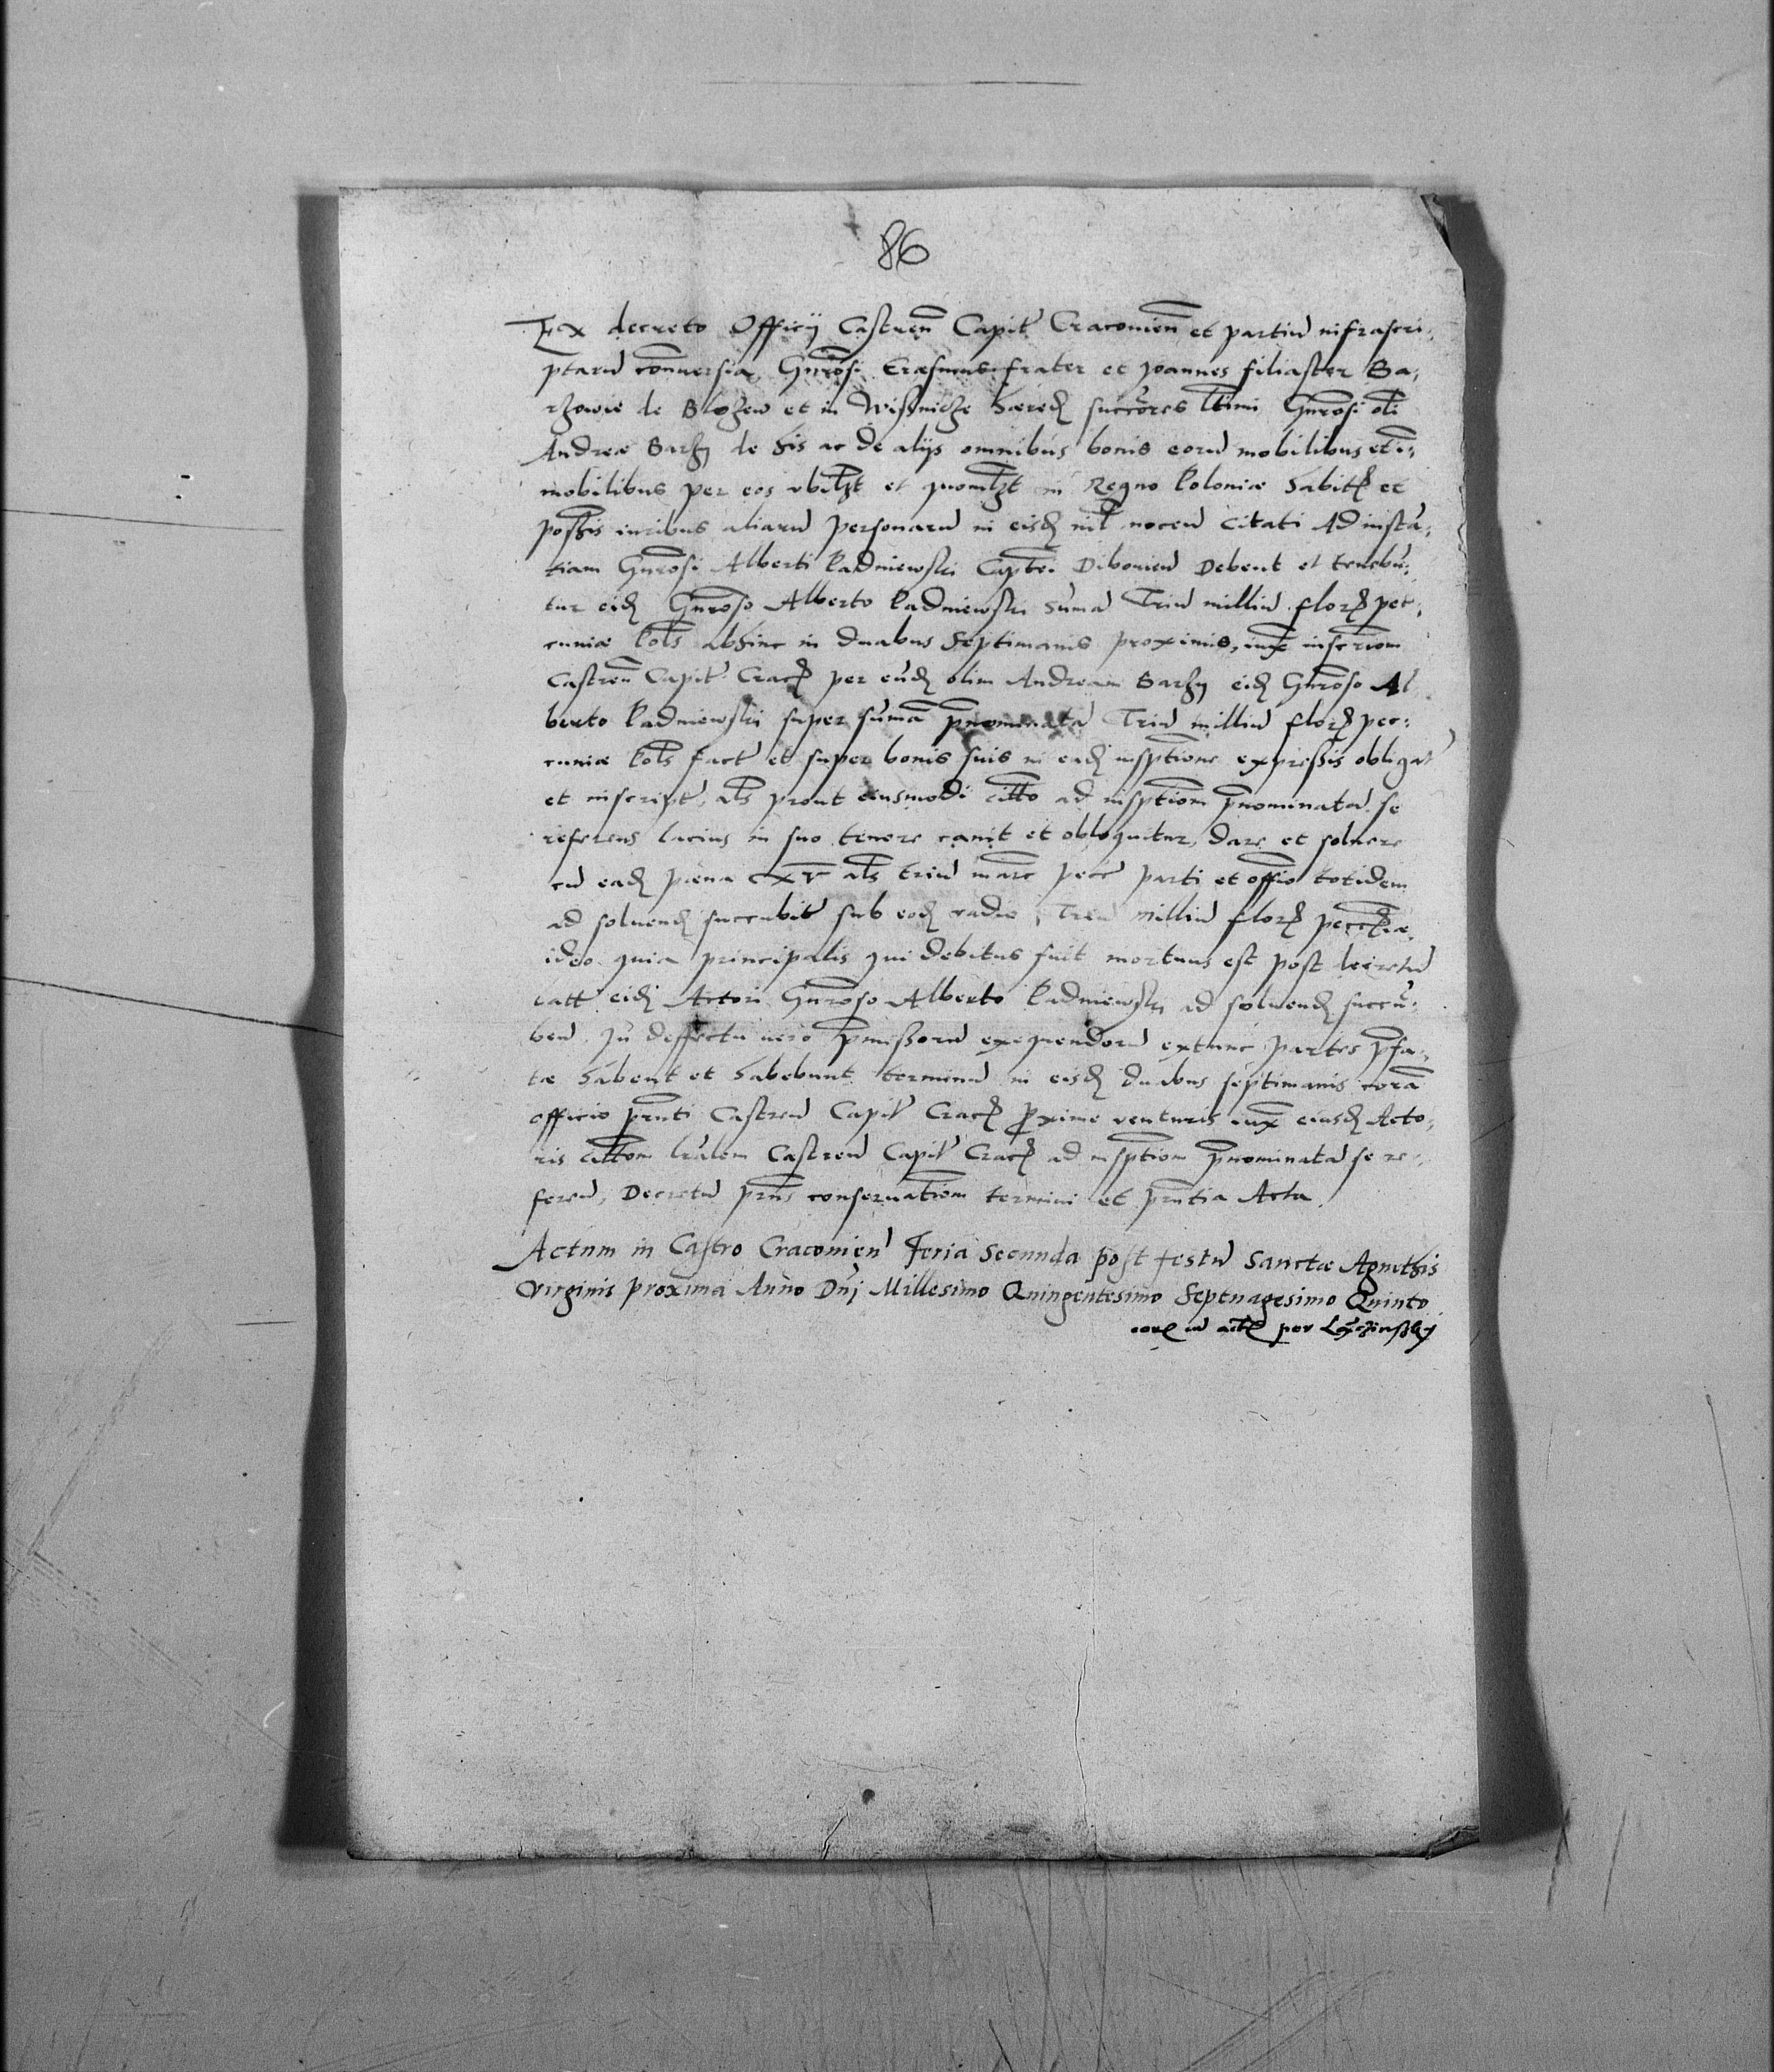 86
Ex decreto Officij Castren Capit Cracovien et partiu infrascri-
ptaru conuersia, Gnrosi Erasmus frater et Joannes filiaster Ba-
rzowie de Blozew et in Wisnicze hæred succores ltimi Gnrosi oli
Andreæ Barzy de his ac de alijs omnibus bonis eoru mobilibus et i-
mobilibus per eos vbilzt et quomlzt in Regno Poloniæ habit et
possis iuribus aliaru personaru in eisd nil nocen Citati Ad insta-
tiam Gnrosi Alberti Kadniewski Captei Dibonien Debent et tenebu-
tur eid Gnroso Alberto Kadniewski suma Triu milliu flor pec-
cuniæ Pols abhinc in duabus Septimanis proximis, iuxe inscriom
Castren Capit Crac per eud olim Andream Barzy eid Gnroso Al-
berto Kadniewski super suma pnominata Triu milliu flor pec-
cuniæ Pols fact et super bonis suis in ead insptione expressis obligat
et inscript, als prout eiusmodi citto ad insptiom pnominata se
referens lacius in suo tenore canit et obloquitur, dare et soluere
cu ead pæna XV als triu marc pecc parti et offio totidem
ad soluend succubit sub eod vadio Triu milliu flor pecc
ideo quia principalis qui debitus fuit mortuus est post decretu
latt eid Actori Gnroso Alberto Kadniewski ad soluend succu-
ben. In deffectu uero pmissoru exequendoru extunc partes pfa-
tæ habent et habebunt terminu in eisd duabus septimanis cora
officio pnti Castren Capit Crac proxime venturis iux eiusd Acto-
ris cittom lralem Castren Capit Crac ad insptiom pnominata se re-
feren, Decretu prns conseruatiom termini et pntia Acta
Actum in Castro Cracouien Feria Secunda post festu Sanctæ Agnethis
Virginis proxima Anno Dnj Millesimo Quingentesimo Septuagesimo Quinto
per